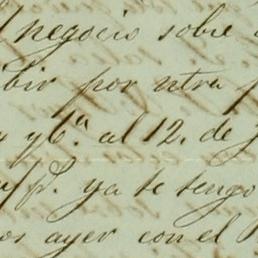 negocio sobre
bir por ntra
y yb.ª al 12. de
ya te tengo
os ayer con el